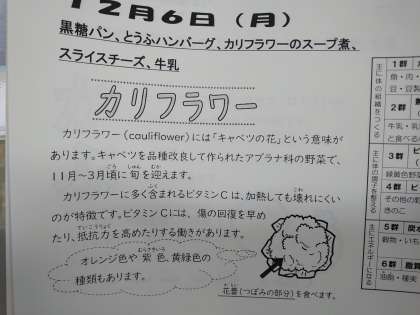 12月6日（月）
黒糖パン、とうふハンバーグ、カリフラワーのスープ煮、
スライスチーズ、牛乳
カリフラワー
カリフラワー（cauliflower）には「キャベツの花」という意味が
あります。キャベツを品種改良して作られたアブラナ科の野菜で、
11月～3月頃に旬を迎えます。
カリフラワーに多く含まれるビタミンCは、加熱しても壊れにくい
のが特徴です。ビタミンCには、傷の回復を早め
たり、抵抗力を高めたりする働きがあります。
オレンジ色や紫色、黄緑色の
種類もあります。
花蕾（つぼみの部分）を食べます。
主に体の組織をつくる
1群
魚・肉・
豆・豆製
2群
牛乳・乳
と食べる
主に体の調子を整える
3群
緑黄色野
4群
その他の
きのこ
主にエネルギーになる
5群
穀物・いも
6群
油脂・種実